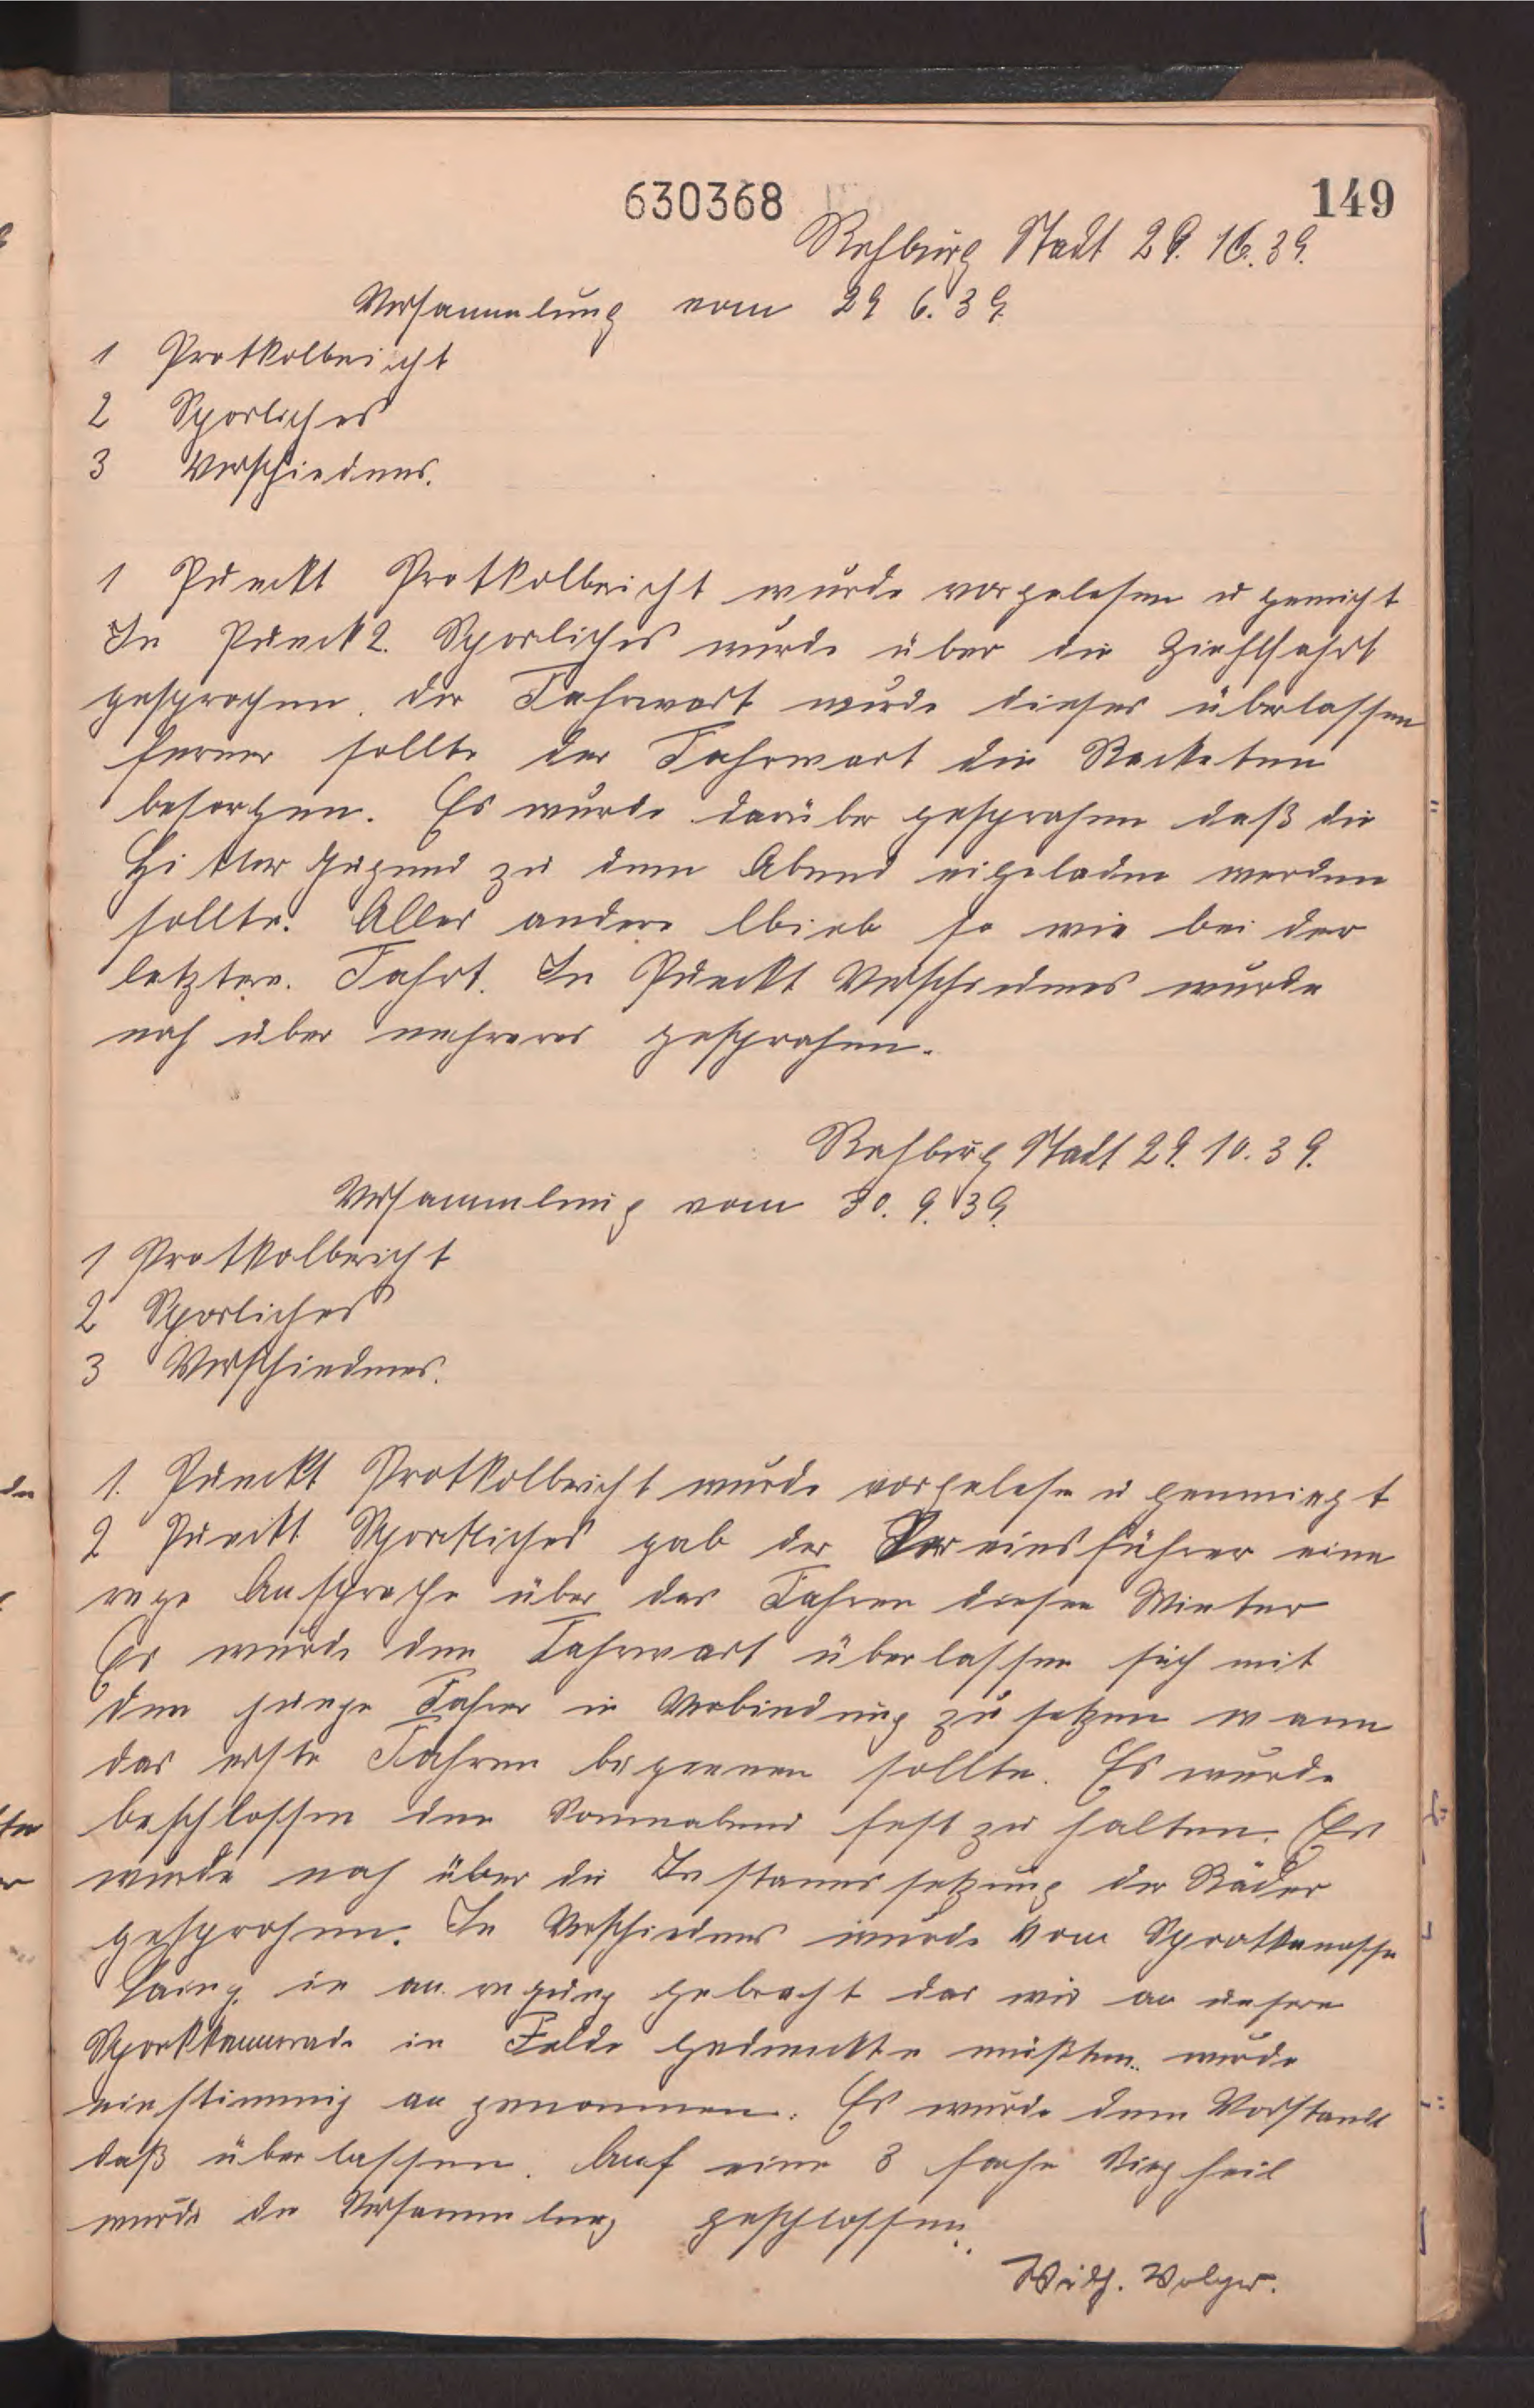 630368
149
Rehburg Stadt 29. 10. 39.
Versammlung vom 29 6. 39.
1 Protkolbericht
2 Sporliches
3 Verschiednes.
1 Punckt Protkolbericht wurde vorgelesen u gemigt
In Punck 2. Sporliches wurde über die Ziehlfahrt
gesprochen. der Fahrwart wurde dieses überlassen
ferner sollte der Fahrwart die Racketen
besorgen. Es wurde darüber gesprochen daß die
Hitler Jugend zu dem Abend eigeladen werden
sollte. Alles andere lbieb so wie bei der
letzten. Fahrt. In Punckt Verschiednes wurde
noch über mehreres gesprochen.
Rehburg Stadt 29. 10. 39.
Versammlung vom 30. 9. 39.
1 Protkolbericht
2 Sporliches
3 Verschiednes.
1. Punckt Protkolbericht wurde vorgelesen u genmiegt
2 Punckt Sportliches gab der Vereinsführer eine
rege Ansprache über das Fahren diesen Winter
Es wurde den Fahrwart überlassen sich mit
den junge Fahrer in Verbindung zu setzen wann
das erste Fahren begiennen sollte. Es wurde
beschlossen den Sonnabend fest zu halten. Es
wurde noch über die Instandssetzung der Räder
gesprochen. In Verschiednes wurde vom
in an regung gebracht das wir an unsere
Sportkammerade in Felde gedenckte müßten. wurde
einstimmig an genommen. Es wurde dem Vorstandt
daß überlassen. Auf eine 3 fache Sieg heil
wurde die Versammlung geschlossen.
Wilh. Volger.